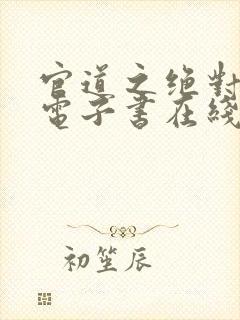 官道之绝對
電子書在綫
初笙辰